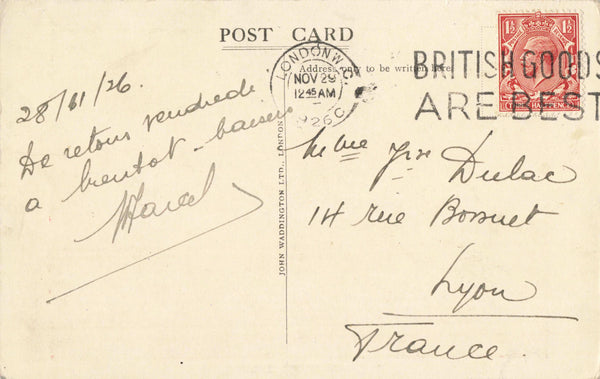 POST CARD
Address only to be written here.
LONDON W.C.
NOV 29
12.45 AM
1926
BRITISH GOODS
ARE BEST
28/11/26
De retour vendredi
a bientot - baisers
Marcel
JOHN WADDINGTON LTD., LONDON
Mme Dulac
14 rue Bossuet
Lyon
France